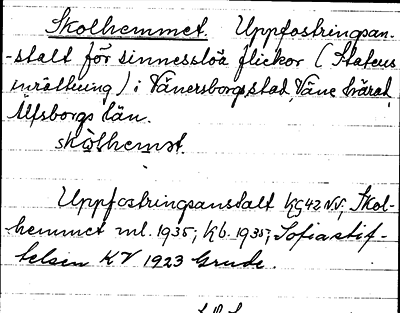 Skolhemmet. Uppfostringsan-
-stalt för sinnesslöa flickor (Statens
inrättning) i Vänersborgs stad, Väne härad,
Älfsborgs län.
skòlhemət.
Uppfostringsanstalt KG42NV; Skol-
hemmet ml. 1935; Kb. 1935; Sofiastif-
telsen KV 1923 Grude.